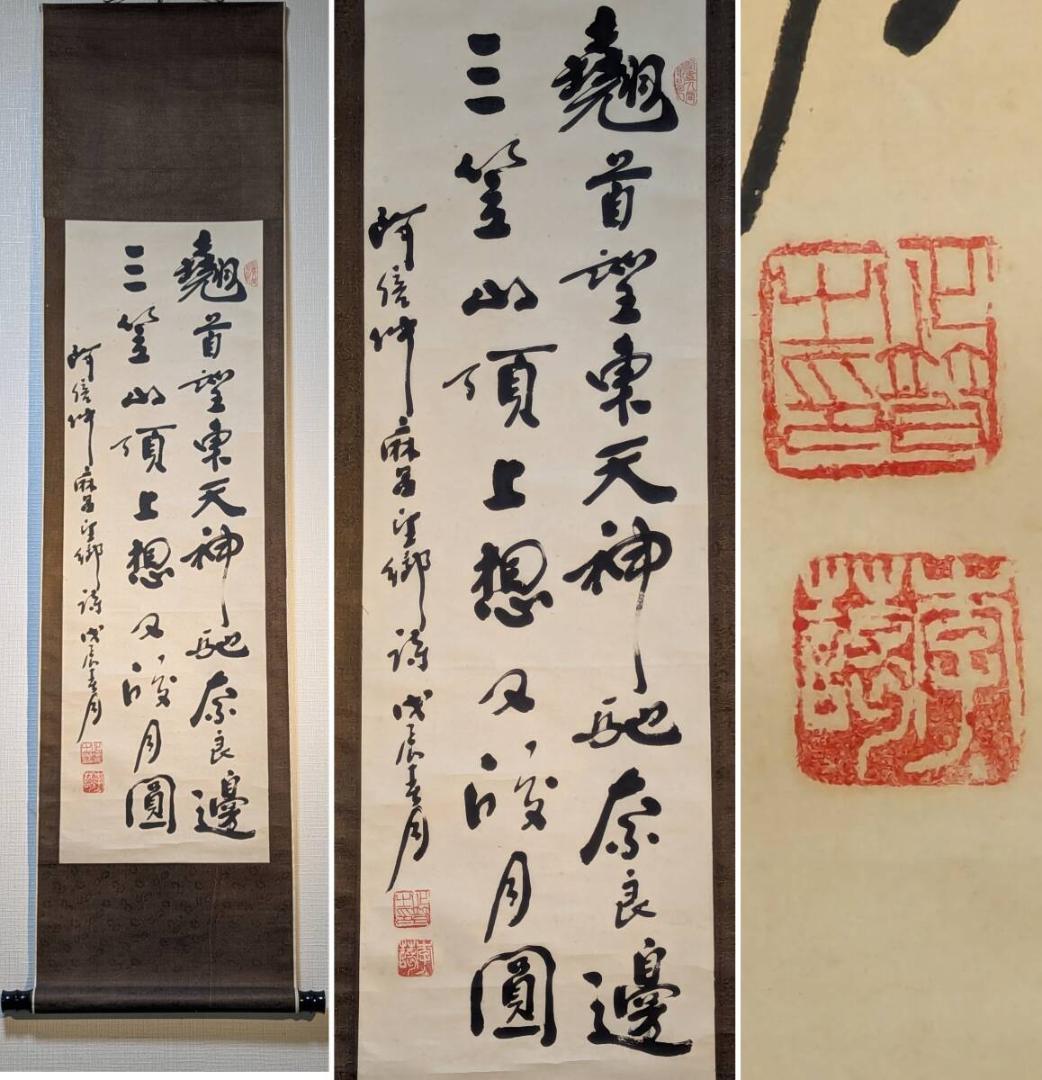 翹首望東天神馳奈良邊
三笠山頂上想又皎月圓
阿倍仲麻呂望鄉詩戊辰春月